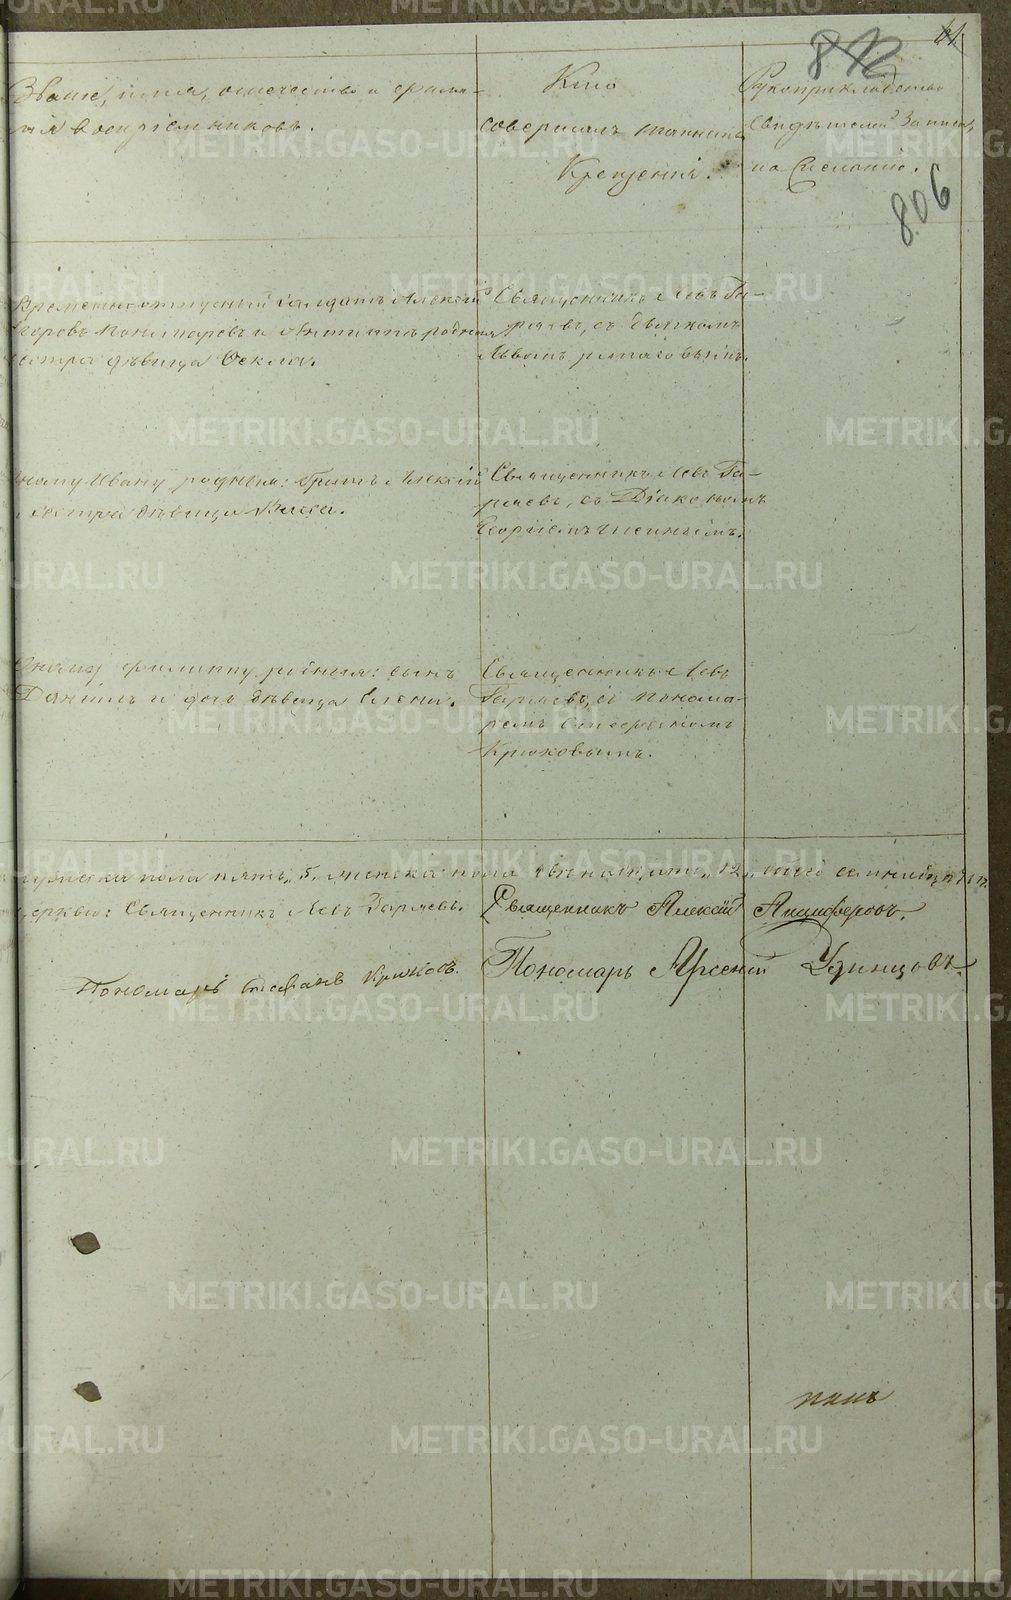 812
41
Званіе, имя, отечество и фами-
лія воспріемниковъ.
Кто
совершалъ таинство
Крещенія.
Рукоприкладство
свидѣтелей записи
по желанію.
806
Временноотпускный солдатъ Алексій
Егоровъ Пономаревъ и родная
сестра дѣвица Фекла.
Священникъ Левъ Га-
ряевъ, съ дьячкомъ
Львомъ
Ивану родныя: братъ Алексій
и сестра дѣвица
Священникъ Левъ Га-
ряевъ, съ Діакономъ
Георгіемъ
Филиппу родныя: сынъ
Даніилъ и дочь дѣвица Елена.
Священникъ Левъ
Гаряевъ, съ понома-
ремъ Стефаномъ
Крюковымъ.
мужеска пола пять, 5, женска пола двѣнадцать, 12, всего семнадцать 17.
церкви: Священникъ Левъ Гаряевъ. Священникъ Алексій Анциферовъ.
Пономарь Стефанъ Крюковъ. Пономарь Арсеній Удинцовъ.
METRIKI.GASO-URAL.RU